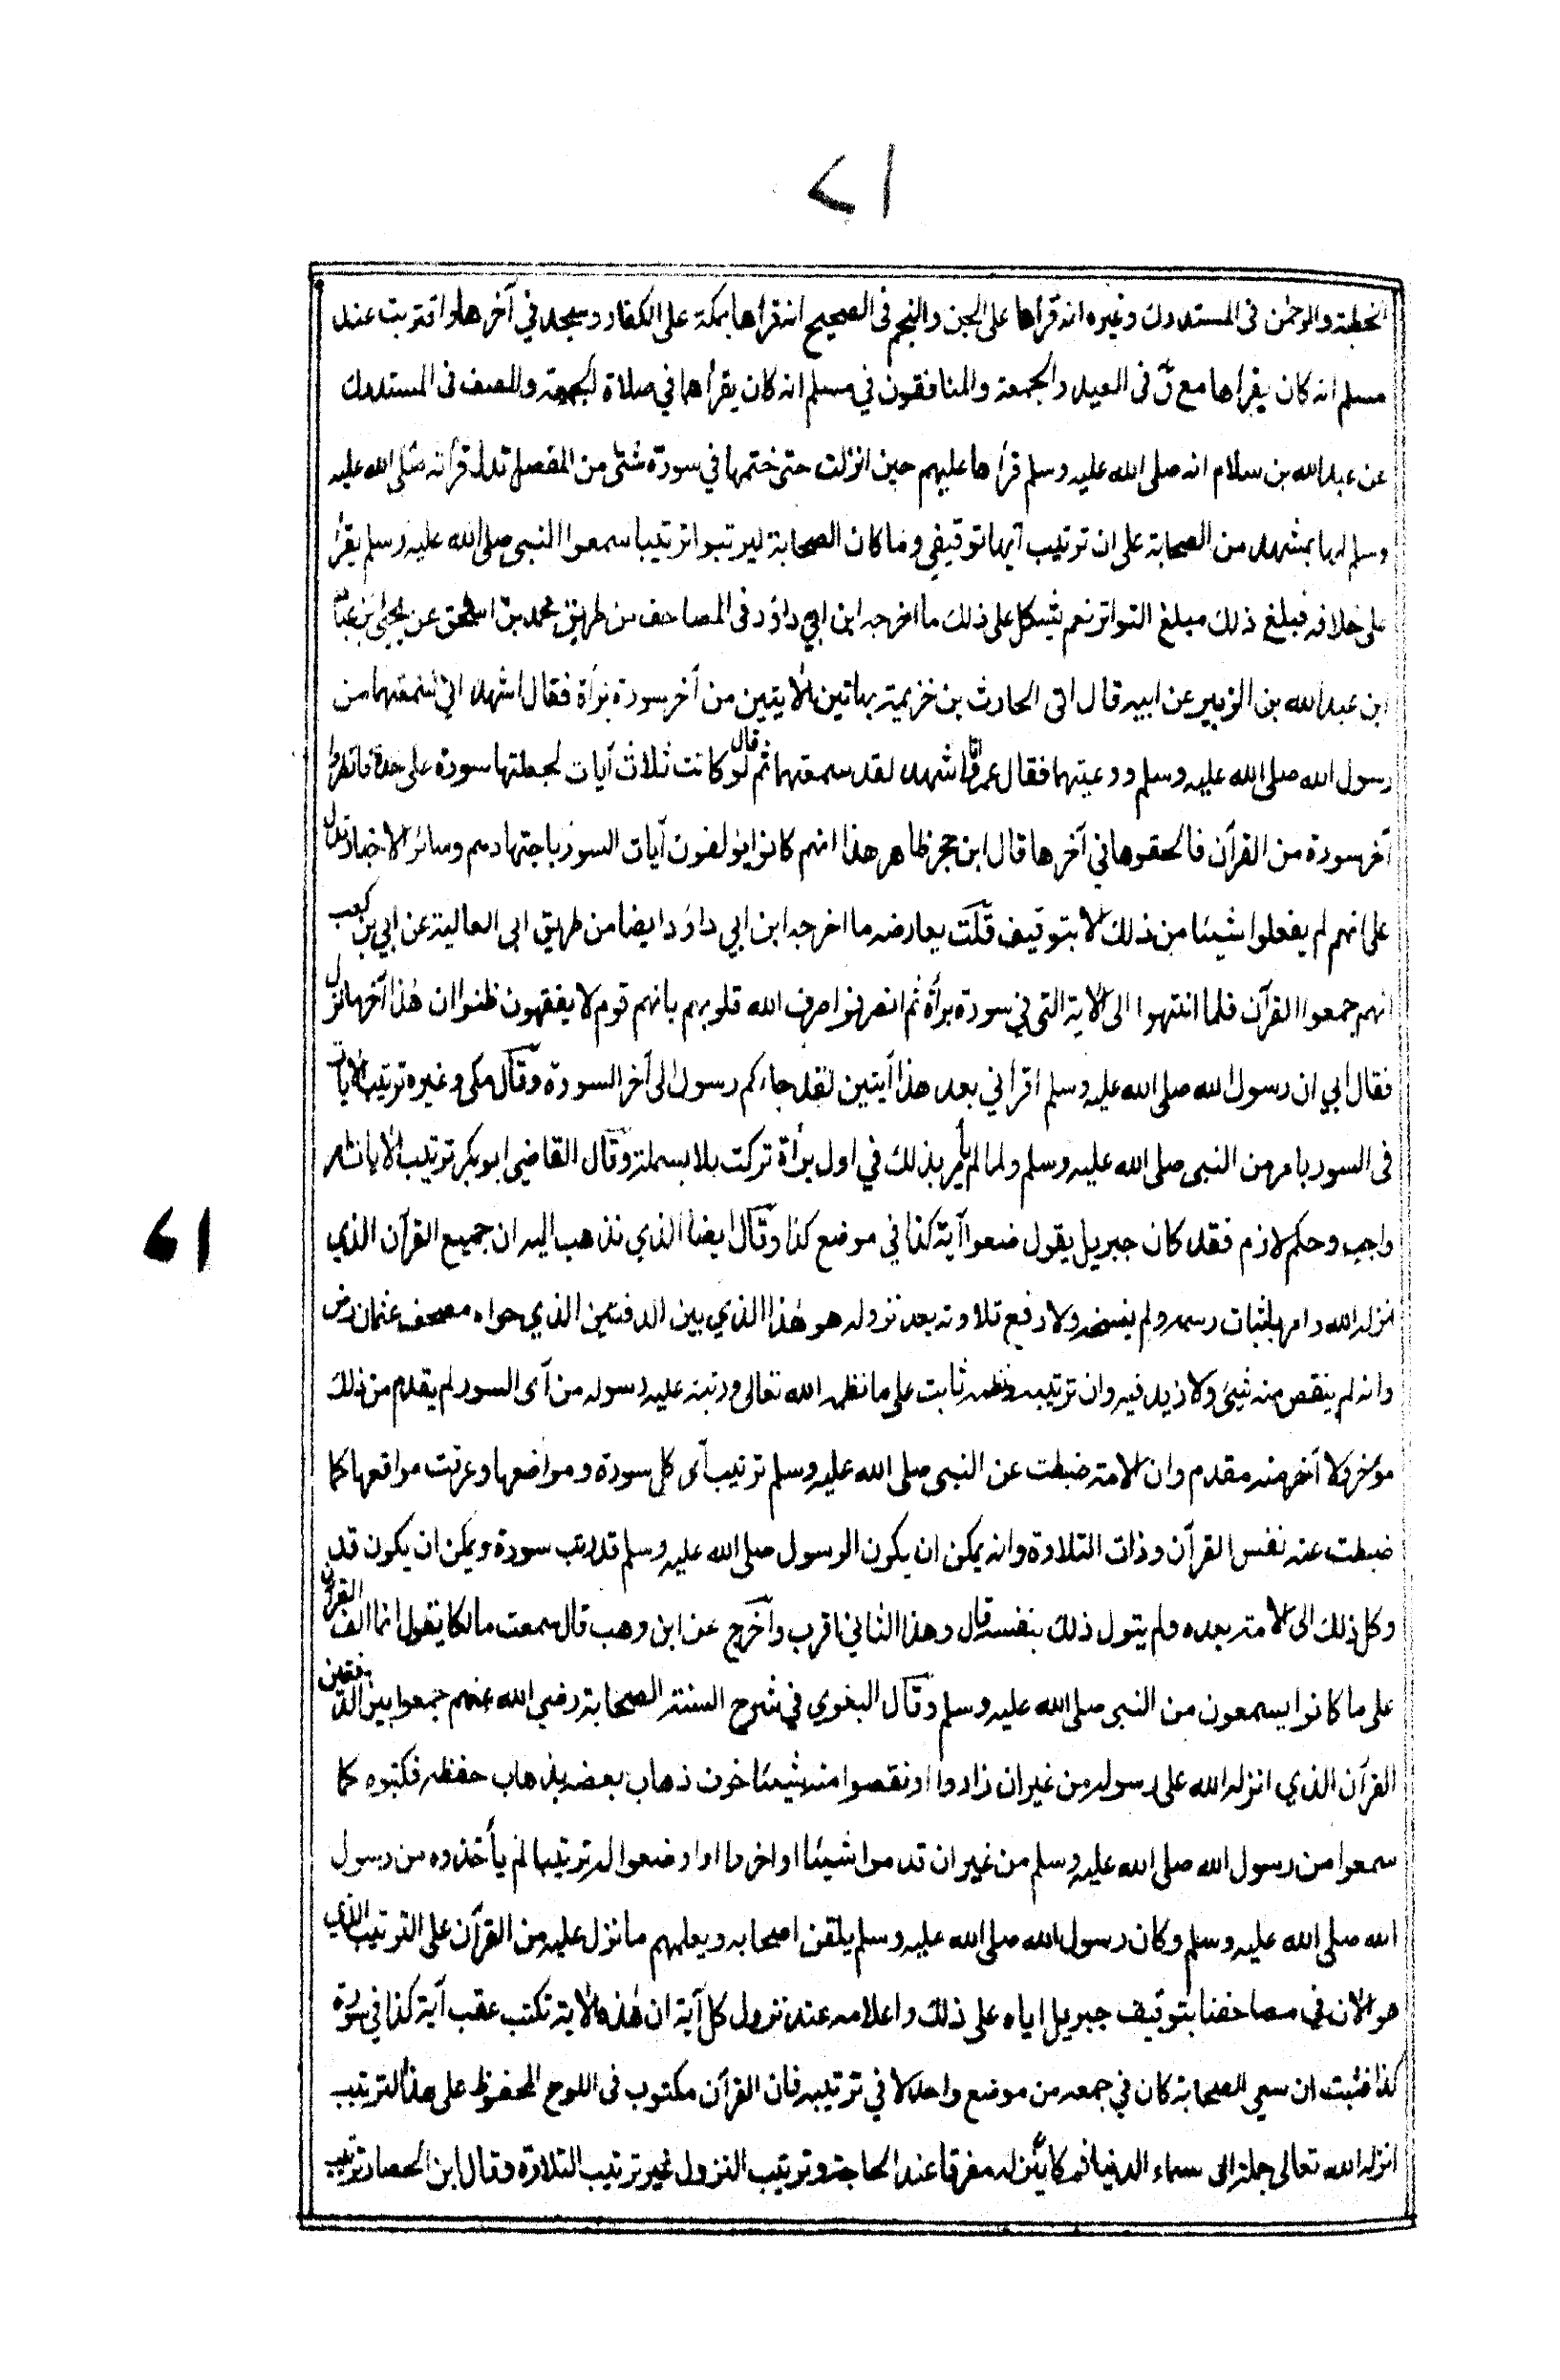 الخطبة والرحمٰن فى المستدرك وغيره انه قرأها على الجن والنجم فى الصحيح انه قرأها بمكة على الكفار وسجد في آخرها واقتربت عند
مسلم انه كان يقرأها مع قٓ فى العيد والجمعة والمنافقون في مسلم انه كان يقرأهما في صلاة الجمعة والصف فى المستدرك
عن عبد الله بن سلام انه صلى الله عليه وسلم قرأها عليهم حين انزلت حتى ختمها في سورة شتى من المفصل تدل قرأته صلى الله عليه
وسلم لها بمشهد من الصحابة على ان ترتيب آيها توقيفي وما كان الصحابة ليرتبوا ترتيبا سمعوا النبى صلى الله عليه وسلم يقرأ
على خلافه فبلغ ذلك مبلغ التواتر نعم يشكل على ذلك ما اخرجه ابن ابي داؤد فى المصاحف من طريق محمد بن اسحٰق عن يحيى بن عباد
ابن عبد الله بن الزبير عن ابيه قال اتى الحارث بن خزيمة بهاتين الأيتين من آخر سورة برأة فقال اشهد اني سمعتهما من
رسول الله صلى الله عليه وسلم ووعيتهما فقال عمر وانا اشهد لقد سمعتهما ثم قال لو كانت ثلاث آيات لجعلتها سورة على حدة فانظروا
آخر سورة من القرآن فالحقوها في آخرها قال ابن حجر ظاهر هذا انهم كانوا يؤلفون آيات السور باجتهادهم وسائر الاخبار تدل
على انهم لم يفعلوا شيئا من ذلك الا بتوقيف قلت يعارضه ما اخرجه ابن ابي داؤد ايضا من طريق ابى العالية عن ابي بن كعب
انهم جمعوا القرآن فلما انتهوا الى الأية التى في سورة برأة ثم انصرفوا صرف الله قلوبهم بانهم قوم لا يفقهون ظنوا ان هٰذا آخر ما نزل
فقال ابي ان رسول الله صلى الله عليه وسلم اقرأني بعد هذا آيتين لقد جاءكم رسول الى آخر السورة وقال مكى وغيره ترتيب الأيات
فى السور بامر من النبى صلى الله عليه وسلم ولما لم يأمر بذلك في اول برأة تركت بلا بسملة وقال القاضى ابو بكر ترتيب الأيات امر
واجب وحكم لازم فقد كان جبريل يقول ضعوا آية كذا في موضع كذا وقال ايضا الذي نذهب اليه ان جميع القرآن الذي
انزله الله وامر باثبات رسمه ولم ينسخه ولا رفع تلاوته بعد نزوله هو هٰذا الذي بين الدفتين الذي حواه مصحف عثمان رض
وانه لم ينقص منه شيئ ولا زيد فيه وان ترتيبه ونظمه ثابت على ما نظمه الله تعالى ورتبه عليه رسوله من آى السور لم يقدم من ذلك
مؤخر ولا آخر منه مقدم وان الامة ضبطت عن النبى صلى الله عليه وسلم ترتيب آى كل سورة ومواضعها وعرفت مواقعها كما
ضبطت عنه نفس القرآن وذات التلاوة وانه يمكن ان يكون الرسول صلى الله عليه وسلم قد رتب سورة ويمكن ان يكون قد
وكل ذلك الى الامة بعده ولم يتول ذلك بنفسه قال وهذا الثاني اقرب واخرج عن ابن وهب قال سمعت مالكا يقول انما الف القرآن
على ما كانوا يسمعون من النبى صلى الله عليه وسلم وقال البغوي في شرح السنة الصحابة رضي الله عنهم جمعوا بين الدفتين
القرآن الذي انزله الله على رسوله من غير ان زادوا او نقصوا منه شيئا خوف ذهاب بعضه بذهاب حفظه فكتبوه كما
سمعوا من رسول الله صلى الله عليه وسلم من غير ان قدموا شيئا او اخروا او وضعوا له ترتيبا لم يأخذوه من رسول
الله صلى الله عليه وسلم وكان رسول الله صلى الله عليه وسلم يلقن اصحابه ويعلمهم ما نزل عليه من القرآن على الترتيب الذي
هو الأن في مصاحفنا بتوقيف جبريل اياه على ذلك واعلامه عند نزول كل آية ان هٰذه الأية تكتب عقب آية كذا في سورة
كذا فثبت ان سعي الصحابة كان في جمعه من موضع واحد لا في ترتيبه فان القرآن مكتوب فى اللوح المحفوظ على هذا الترتيب
انزله الله تعالى جملة الى سماء الدنيا ثم كان ينزله مفرقا عند الحاجة وترتيب النزول غير ترتيب التلاوة وقال ابن الحصار ترتيب